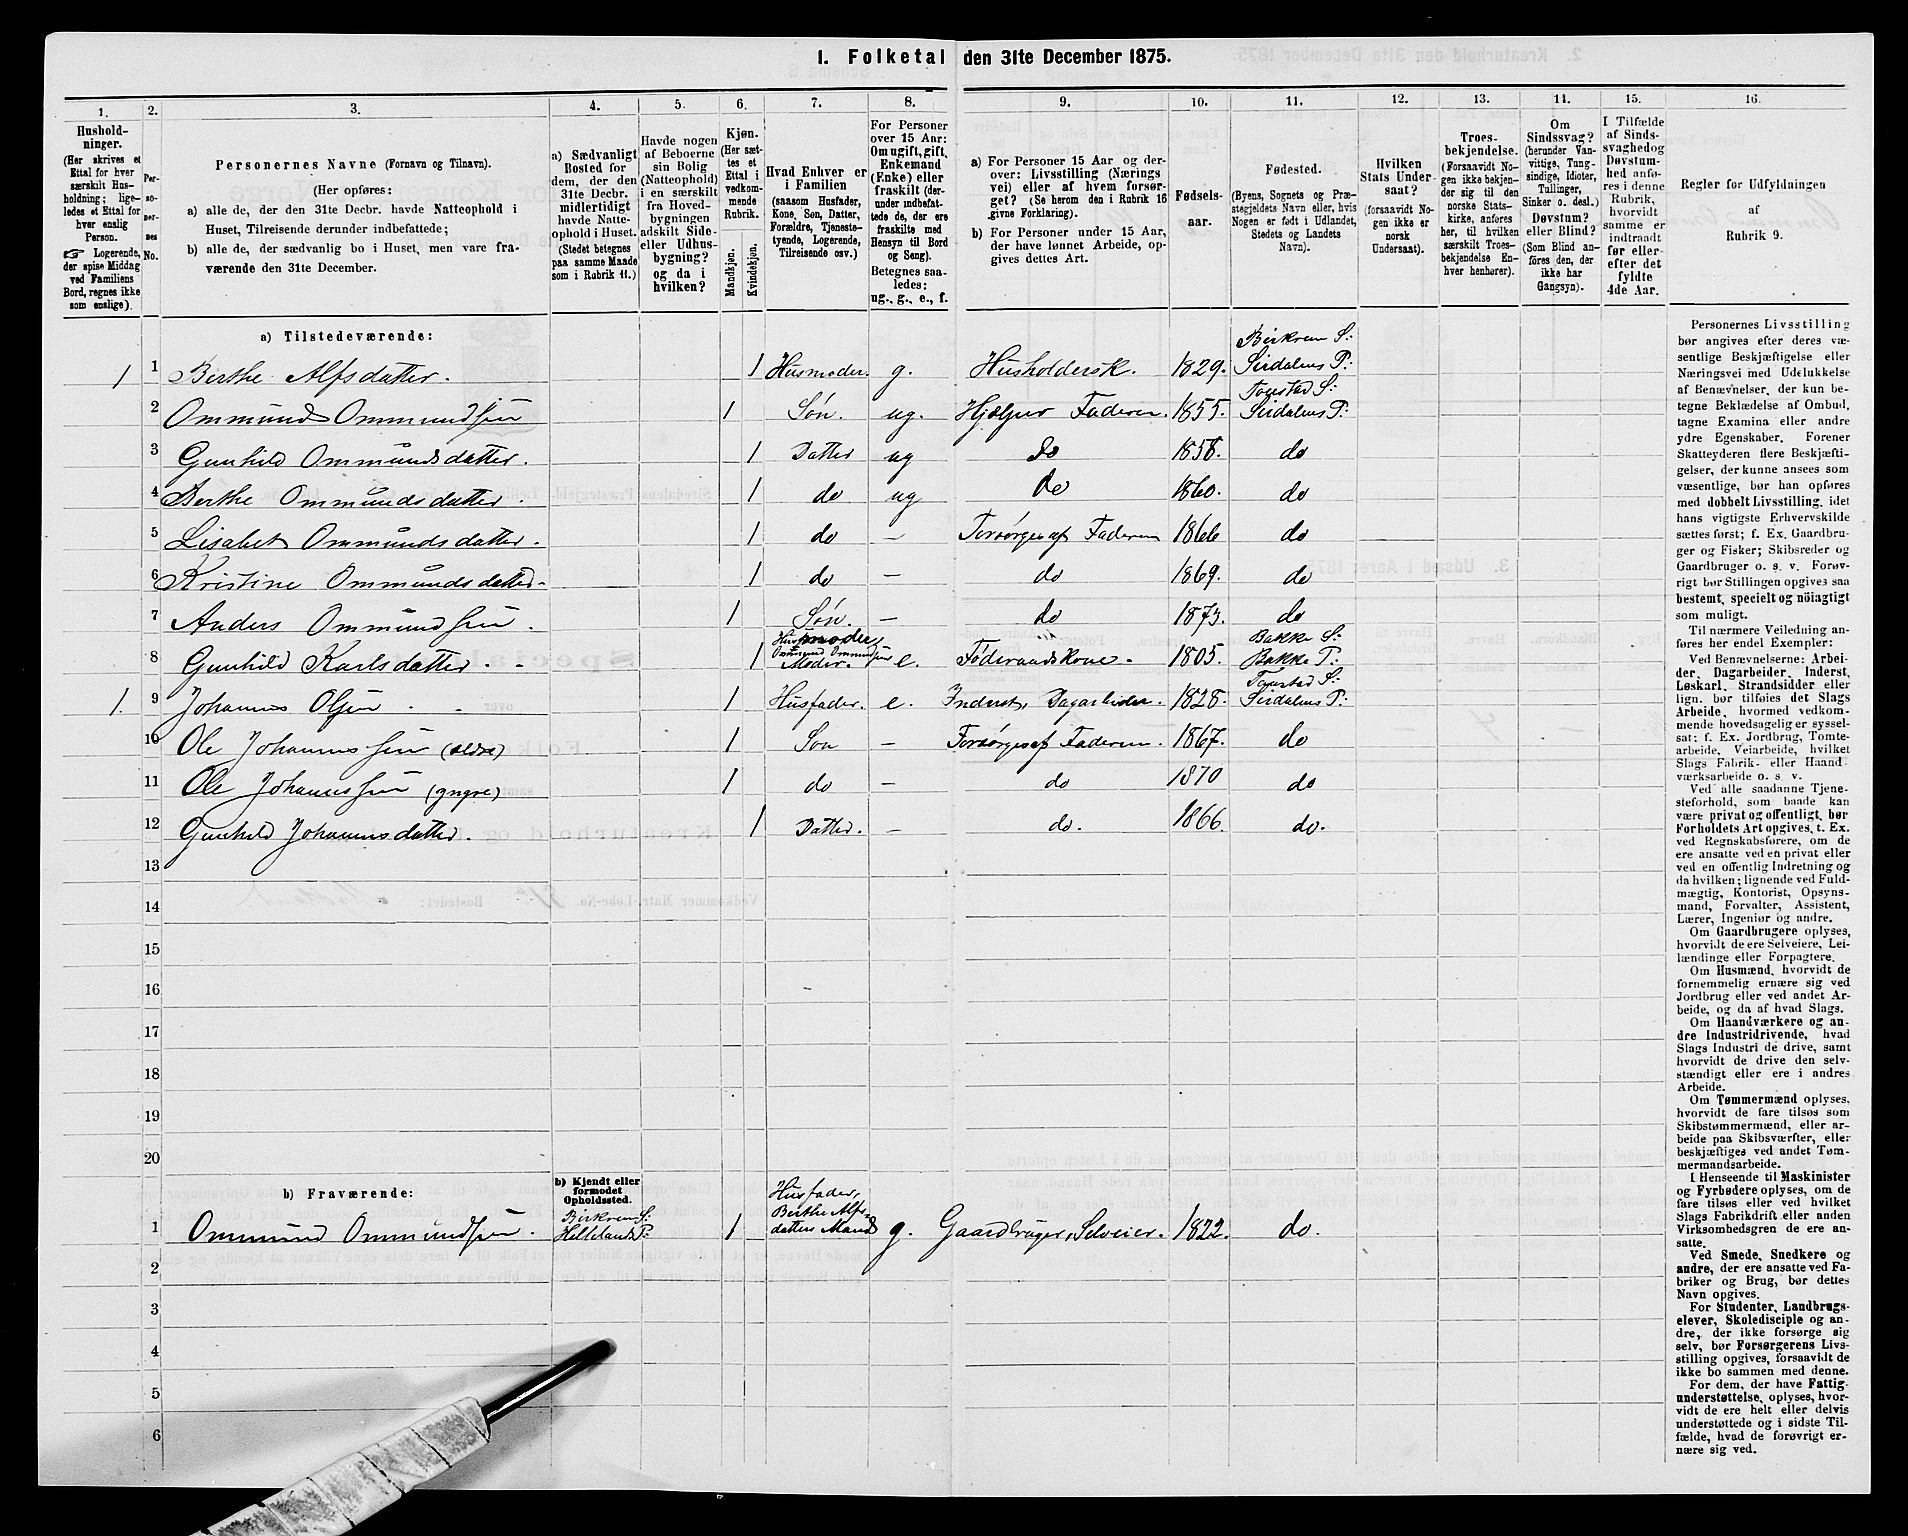 1. Folketal den 31te December 1875.
1. 2. 3. 4. 5. 6. 7. 8. 9. 10. 11. 12. 13. 14. 15. 16.
Hushold-
ninger.
(Her skrives et
Ettal for hver
særskilt Hus-
holdning; lige-
ledes et Ettal for
hver enslig
Person.
☞ Logerende,
der spise Middag
ved Familiens
Bord, regnes ikke
som enslige).
Per-
so-
ner-
nes
No.
Personernes Navne (Fornavn og Tilnavn).
(Her opføres:
a) alle de, der den 31te Decbr. havde Natteophold i
Huset, Tilreisende derunder indbefattede;
b) alle de, der sædvanlig bo i Huset, men vare fra-
værende den 31te December.
a) Sædvanligt
Bosted for
dem, der den
31te Decbr.
midlertidigt
havde Natte-
ophold i Huset.
(Stedet betegnes
paa samme Maade
som i Rubrik 11.)
Havde nogen
af Beboerne
sin Bolig
(Natteophold)
i en særskilt
fra Hoved-
bygningen
adskilt Side-
eller Udhus-
bygning?
og da i
hvilken?
Kjøn.
(Her sæt-
tes et
Ettal i
vedkom-
mende
Rubrik.
Mandkjøn.
Kvindekjøn.
Hvad Enhver er
i Familien
(saasom Husfader,
Kone, Søn, Datter,
Forældre, Tjeneste-
tyende, Logerende,
Tilreisende osv.)
For Personer
over 15 Aar:
Om ugift, gift,
Enkemand
(Enke) eller
fraskilt (der-
under indbefat-
tede de, der ere
fraskilte med
Hensyn til Bord
og Seng).
Betegnes saa-
ledes:
ug., g., e., f.
a) For Personer 15 Aar og der-
over: Livsstilling (Nærings
vei) eller af hvem forsør-
get? (Se herom den i Rubrik 16
givne Forklaring).
b) For Personer under 15 Aar,
der have lønnet Arbeide, op-
gives dettes Art.
Fødsels-
aar.
Fødested.
(Byens, Sognets og Præ-
stegjeldets Navn eller, hvis
Nogen er født i Udlandet,
Stedets og Landets
Navn).
Hvilken
Stats Under-
saat?
(forsaavidt No-
gen ikke er
norsk
Undersaat).
Troes-
bekjendelse.
(Forsaavidt No-
gen ikke bekjen-
der sig til den
norske Stats-
kirke, anføres
her, til hvilken
særskilt Troes-
bekjendelse En-
hver henhører).
Om
Sindssvag?
(herunder Van-
vittige, Tung-
sindige, Idioter,
Tullinger,
Sinker o. desl.)
Døvstum?
eller Blind?
(Som Blind an-
føres den, der
ikke har
Gangsyn).
I Tilfælde
af Sinds-
svaghed og
Døvstum-
hed anfø-
res i denne
Rubrik,
hvorvidt
samme er
indtraadt
før eller
efter det
fyldte
4de Aar.
Regler for Udfyldningen
af
Rubrik 9.
a) Tilstedeværende:
1 1 Berthe Alfsdatter. 1 Husmoder. g. Husholdersk. 1829. Birkrem S: Sirdalens P:
2 Ommund Ommundsen 1 Søn. ug. Hjælper Faderen. 1855. Tonstad S: Sirdalens P:
3 Gunhild Ommundsdatter. 1 Datter ug do 1858. do
4 Berthe Ommundsdatter. 1 do ug do 1860. do
5 Lisabet Ommundsdatter. 1 do – Forsørges af Faderen 1866 do
6 Kristine Ommundsdatter. 1 do – do 1869. do
7 Anders Ommundsen. 1 Søn. – do 1873. do
8 Gunhild Karlsdatter. 1 Husmoder Ommund Ommundsens Moder. e. Føderaadskone. 1805. Bakke S: Bakke P:
1 9 Johannes Olsen. 1 Husfader. e. Inderst, Dagarbeider. 1828. Tonstad S: Sirdalens P:
10 Ole Johannessen (ældre) 1 Søn – Forsørges af Faderen. 1867. do
11 Ole Johannessen (yngre) 1 do – do 1870 do
12 Gunhild Johannesdatter. 1 Datter. – do. 1866. do.
13
14
15
16
17
18
19
20
b) Fraværende:
b) Kjendt eller
formodet
Opholdssted.
1 Ommund Ommundsen Birkrem S: Hellelands P: 1 Husfader, Berthe Alfs-
datters Mand g. Gaardbruger, Selveier. 1822. do.
2
3
4
5
6
Personernes Livsstilling
bør angives efter deres væ-
sentlige Beskjæftigelse eller
Næringsvei med Udelukkelse
af Benævnelser, der kun be-
tegne Beklædelse af Ombud,
tagne Examina eller andre
ydre Egenskaber. Forener
Skatteyderen flere Beskjæfti-
gelser, der kunne ansees som
væsentlige, bør han opføres
med dobbelt Livsstilling, idet
hans vigtigste Erhvervskilde
sættes først; f. Ex. Gaardbru-
ger og Fisker; Skibsreder og
Gaardbruger o. s. v. Forøv-
rigt bør Stillingen opgives saa
bestemt, specielt og nøiagtigt
som muligt.
Til nærmere Veiledning an-
føres her endel Exempler:
Ved Benævnelserne: Arbei-
der, Dagarbeider, Inderst,
Løskarl, Strandsidder eller
lign. bør tilføies det Slags
Arbeide, hvormed vedkom-
mende hovedsagelig er syssel-
sat; f. Ex. Jordbrug, Tomte-
arbeide, Veiarbeide, hvilket
Slags Fabrik- eller Haand
værksarbeide o. s. v.
Ved alle saadanne Tjene-
steforhold, som baade kan
være privat og offentligt, bør
Forholdets Art opgives, t. Ex.
ved Regnskabsførere, om de
ere ansatte ved en privat eller
ved en offentlig Indretning og
da hvilken; lignende ved Fuld-
mægtig, Kontorist, Opsyns-
mand, Forvalter, Assistent,
Lærer, Ingeniør og andre.
Om Gaardbrugere oplyses,
hvorvidt de ere Selveiere, Lei-
lændinge eller Forpagtere.
Om Husmænd, hvorvidt de
fornemmelig ernære sig ved
Jordbrug eller ved andet Ar-
beide, og da af hvad Slags.
Om Haandværkere og an-
dre Industridrivende, hvad
Slags Industri de drive, samt
hvorvidt de drive den selv-
stændigt eller ere i andres
Arbeide.
Om Tømmermænd oplyses,
hvorvidt de fare tilsøs som
Skibstømmermænd, eller ar-
beide paa Skibsværfter, eller
beskjæftiges ved andet Tøm-
mermandsarbeide.
I Henseende til Maskinister
og Fyrbødere oplyses, om de
fare tilsøs eller ved hvilket
Slags Fabrikdrift eller anden
Virksomhedsgren de ere an-
satte.
Ved Smede, Snedkere og
andre, der ere ansatte ved Fa-
briker og Brug, bør dettes
Navn opgives.
For Studenter, Landbrugs-
elever, Skoledisciple og an-
dre, der ikke forsørge sig
selv, bør Forsørgerens Livs-
stilling opgives, forsaavidt de
ikke bo sammen med denne.
For dem, der have Fattig-
understøttelse, oplyses, hvor-
vidt de ere helt eller delvis
understøttede og i sidste Til-
fælde, hvad de forøvrigt er-
nære sig ved.